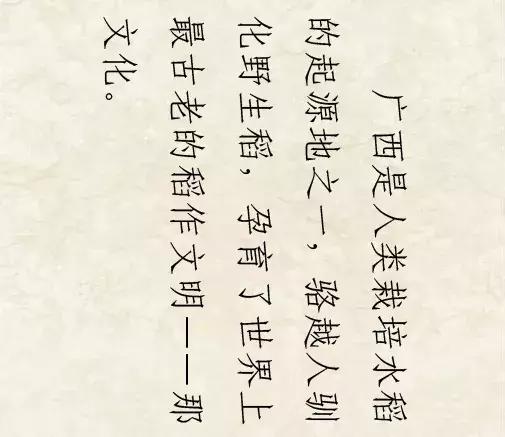 广西是人类栽培水稻
的起源地之一，骆越人驯
化野生稻，孕育了世界上
最古老的稻作文明——那
文化。